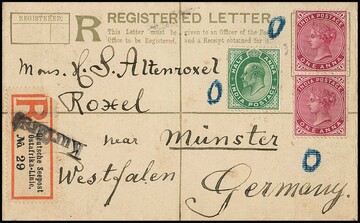 REGISTERED LETTER.
REGISTERED.
R
This Letter must be given to an Officer of the Post
Office to be Registered, and a Receipt obtained for it.
INDIA POSTAGE
ONE ANNA
HALF ANNA
INDIA POSTAGE
INDIA POSTAGE
ONE ANNA
Mons. H. S. Altenroxel
Roxel
near Münster
Westfalen
Germany.
R
Deutsche Seepost
Ostafrika-Linie.
№ 29
0
0
0